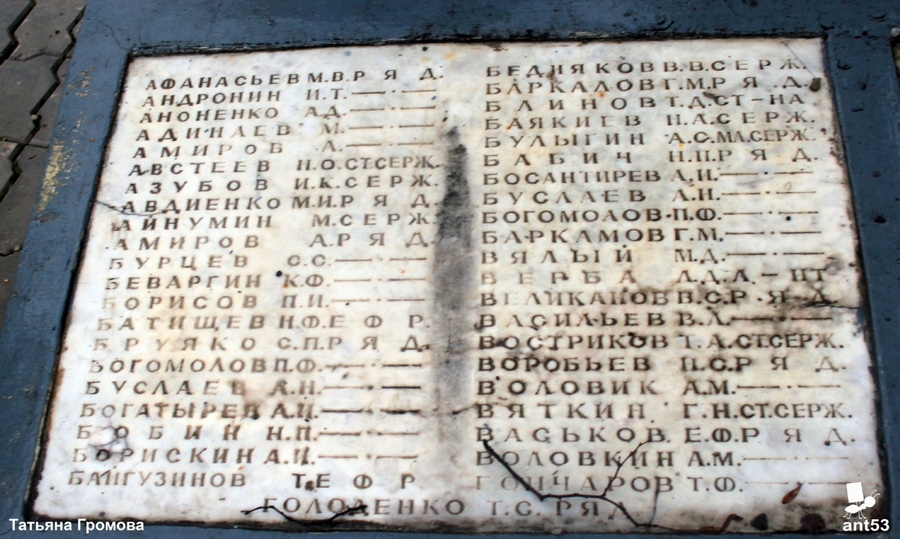 АФАНАСЬЕВ М.В. РЯД.
АНДРОНИН И.Т. —·—
АНОНЕНКО А.Д. —·—
АДИНАЕВ М. —·—
АМИРОВ А. —·—
АВСТЕЕВ Н.О. СТ.СЕРЖ.
АЗУБОВ И.К. СЕРЖ.
АВДИЕНКО М.И. РЯД.
АЙНУМИН М. СЕРЖ.
АМИРОВ А. РЯД.
БУРЦЕВ С.С. —·—
БЕВАРГИН К.Ф. —·—
БОРИСОВ П.И. —·—
БАТИЩЕВ Н.Ф. ЕФР.
БРУЯКО С.П. РЯД.
БОГОМОЛОВ П.Ф. —·—
БУСЛАЕВ А.Н. —·—
БОГАТЫРЕВ —·—
БОБИН Н.П. —·—
БОРИСКИН —·—
БАЙГУЗИНОВ Т. ЕФР.
БЕДНЯКОВ В.В. СЕРЖ.
БАРКАЛОВ Г.М. РЯД.
БЛИНОВ Т.Д. СТ-НА
БАЯКИЕВ Н.А. СЕРЖ.
БУЛЫГИН А.С. МЛ.СЕРЖ.
БАБИЧ Н.П. РЯД.
БОСАНТИРЕВ А.И. —·—
БУСЛАЕВ А.Н. —·—
БОГОМОЛОВ П.Ф. —·—
БАРКАМОВ Г.М. —·—
ВЯЛЫЙ М.Д. —·—
ВЕРБА Л-НТ
ВЕЛИКАНОВ В.С. РЯД.
ВАСИЛЬЕВ В.Л. —·—
ВОСТРИКОВ Т.А. СТ.СЕРЖ.
ВОРОБЬЕВ П.С. РЯД.
ВОЛОВИК А.М. —·—
ВЯТКИН Г.Н. СТ.СЕРЖ.
ВАСЬКОВ Е.Ф. РЯД.
ВОЛОВКИН А.М. —·—
ГОНЧАРОВ Т.Ф. —·—
ГОЛОДЕНКО Т.С. РЯД.
Татьяна Громова
ant53